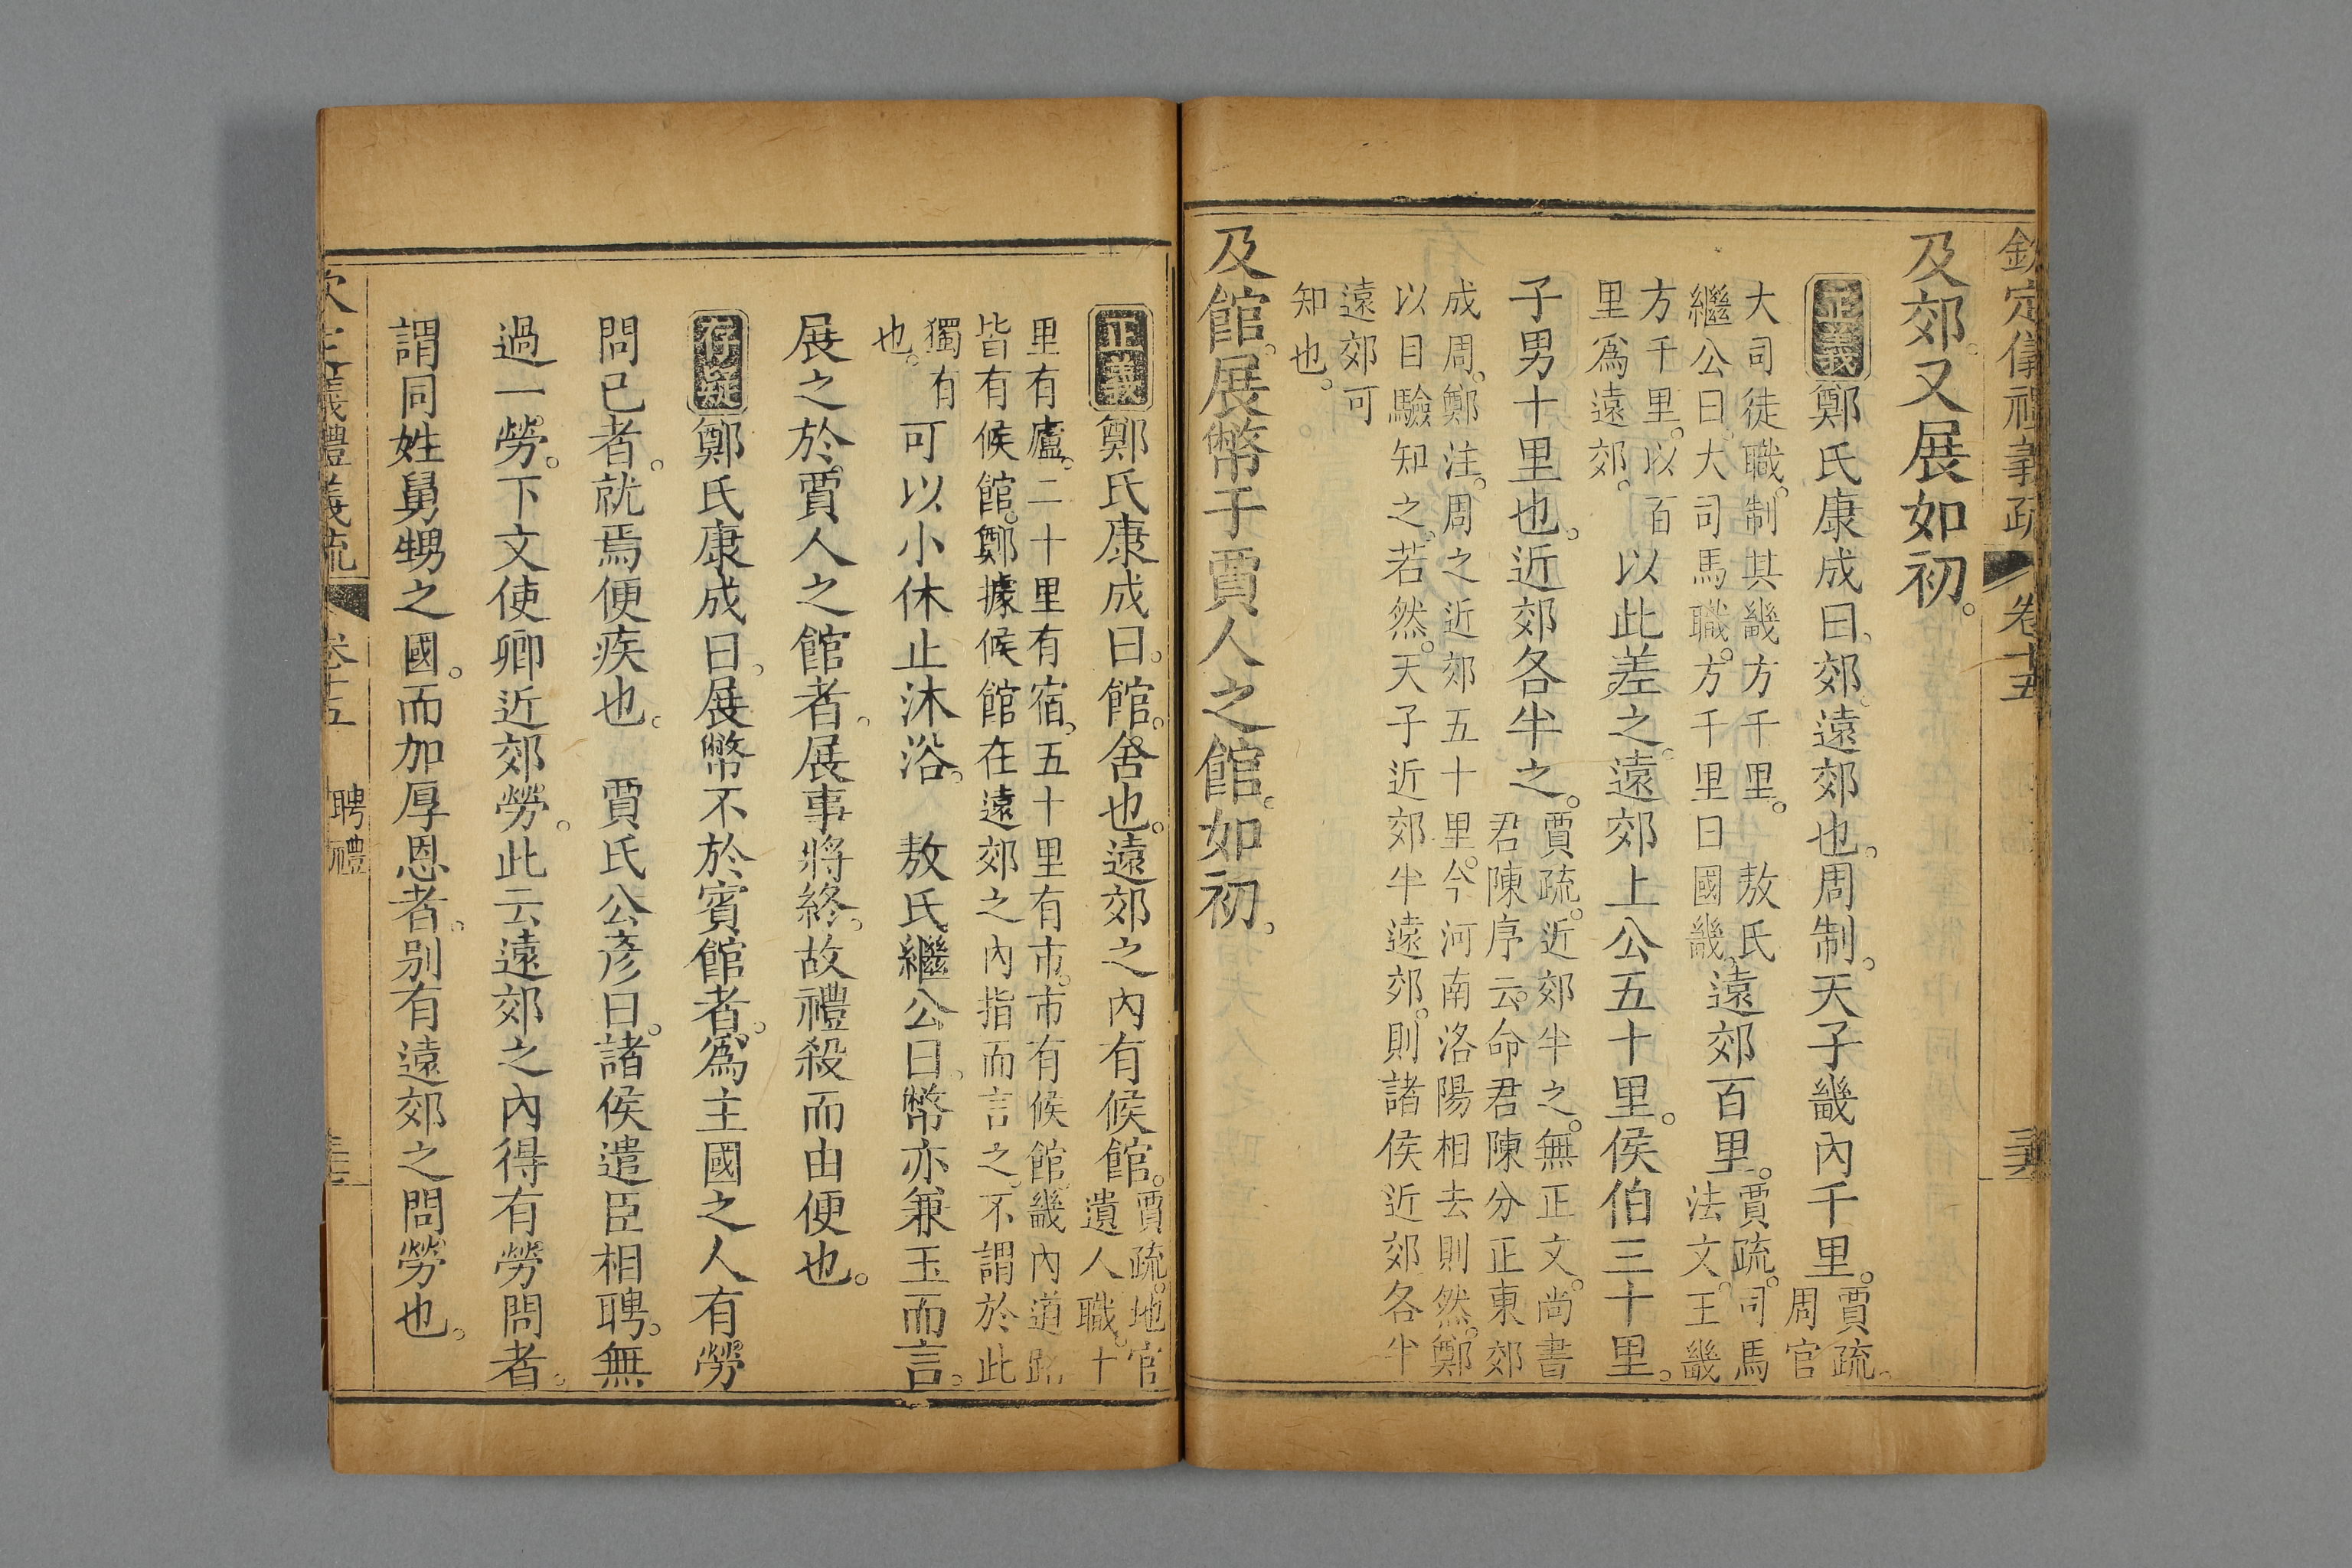 欽定儀禮義疏 卷十五
及郊又展如初。
正義鄭氏康成曰郊遠郊也周制。天子畿內千里。賈疏。周官
大司徒職。制其畿方千里。敖氏繼公曰大司馬職。方千里曰國畿。遠郊百里。賈疏。司馬法文。王畿
方千里。以百里爲遠郊。以此差之。遠郊上公五十里。侯伯三十里。
子男十里也。近郊各半之。賈疏。近郊半之。無正文。尚書君陳序云。命君陳分正東郊
成周。鄭注。周之近郊五十里。今河南洛陽相去則然。鄭以目驗知之。若然。天子近郊半遠郊。則諸侯近郊各半
遠郊可知也。
及館。展幣于賈人之館。如初。
正義鄭氏康成曰。館。舍也。遠郊之內有候館。賈疏。地官遺人職。十
里有廬。二十里有宿。五十里有市。市有候館。畿內道路皆有候館。鄭據候館在遠郊之內指而言之。不謂於此
獨有也。可以小休止沐浴。 敖氏繼公曰。幣亦兼玉而言。
展之於賈人之館者。展事將終。故禮殺而由便也。
存疑鄭氏康成曰。展幣不於賓館者。爲主國之人有勞
問己者。就焉便疾也。 賈氏公彥曰。諸侯遣臣相聘。無
過一勞。下文使卿近郊勞。此云遠郊之內得有勞問者。
謂同姓舅甥之國。而加厚恩者。別有遠郊之問勞也。
欽定儀禮義疏 卷十五 聘禮